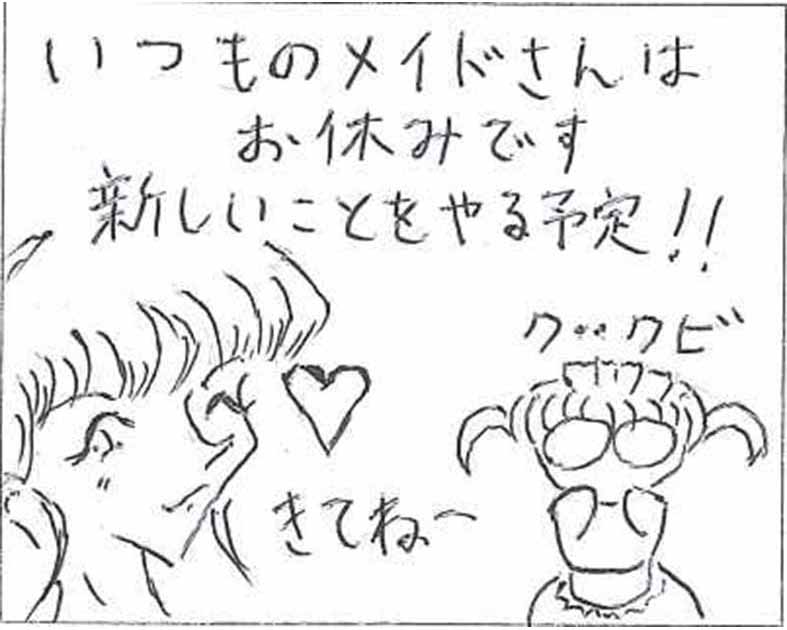 いつものメイドさんは
お休みです
新しいことをやる予定!!
ク‥クビ
きてねー